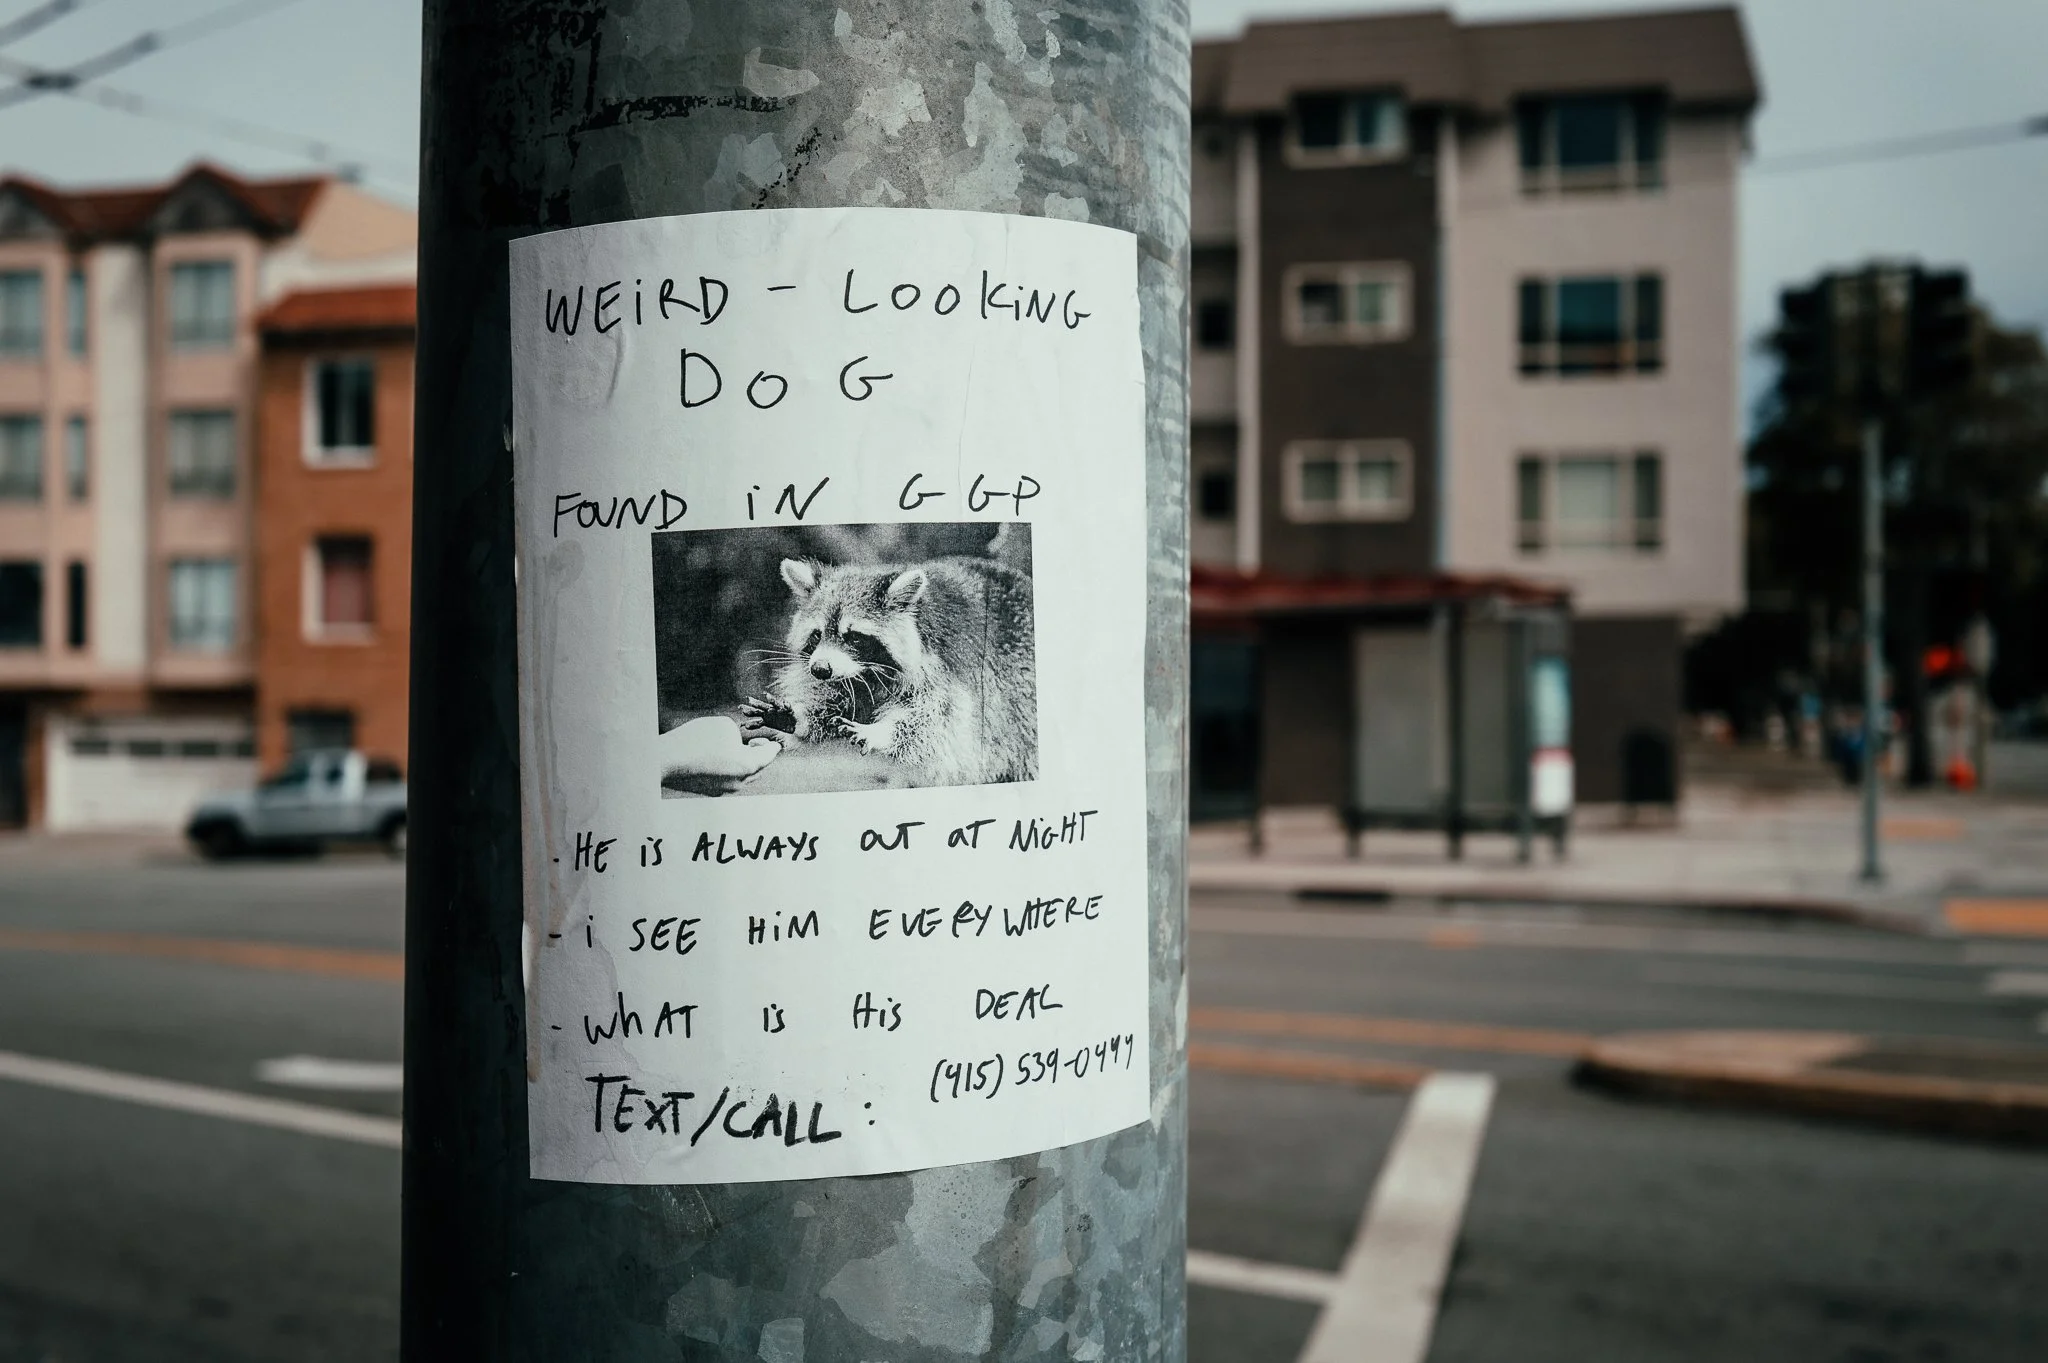 WEiRD - LOOKiNG
DOG
FOUND iN GGP
- HE iS ALWAYS OUT AT NiGHT
- i SEE HiM EVERYWHERE
- WhAT is His DEAL
TEXT/CALL: (415) 539-0499